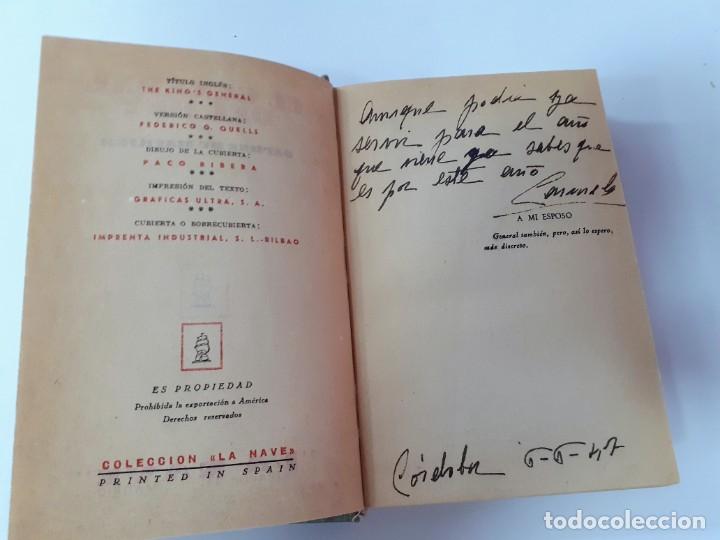 TÍTULO INGLÉS:
THE KING'S GENERAL
***
VERSIÓN CASTELLANA:
FEDERICO G. QUELLS
***
DIBUJO DE LA CUBIERTA:
PACO RIBERA
***
IMPRESIÓN DEL TEXTO:
GRAFICAS ULTRA, S. A.
***
CUBIERTA O SOBRECUBIERTA:
IMPRENTA INDUSTRIAL, S. L.-BILBAO
ES PROPIEDAD
Prohibida la exportación a América
Derechos reservados
COLECCION «LA NAVE»
PRINTED IN SPAIN
Aunque podia ya
servir para el año
que viene ya sabes que
es por este año
A MI ESPOSO
General también, pero, así lo espero,
más discreto.
Córdoba
todocoleccion.net